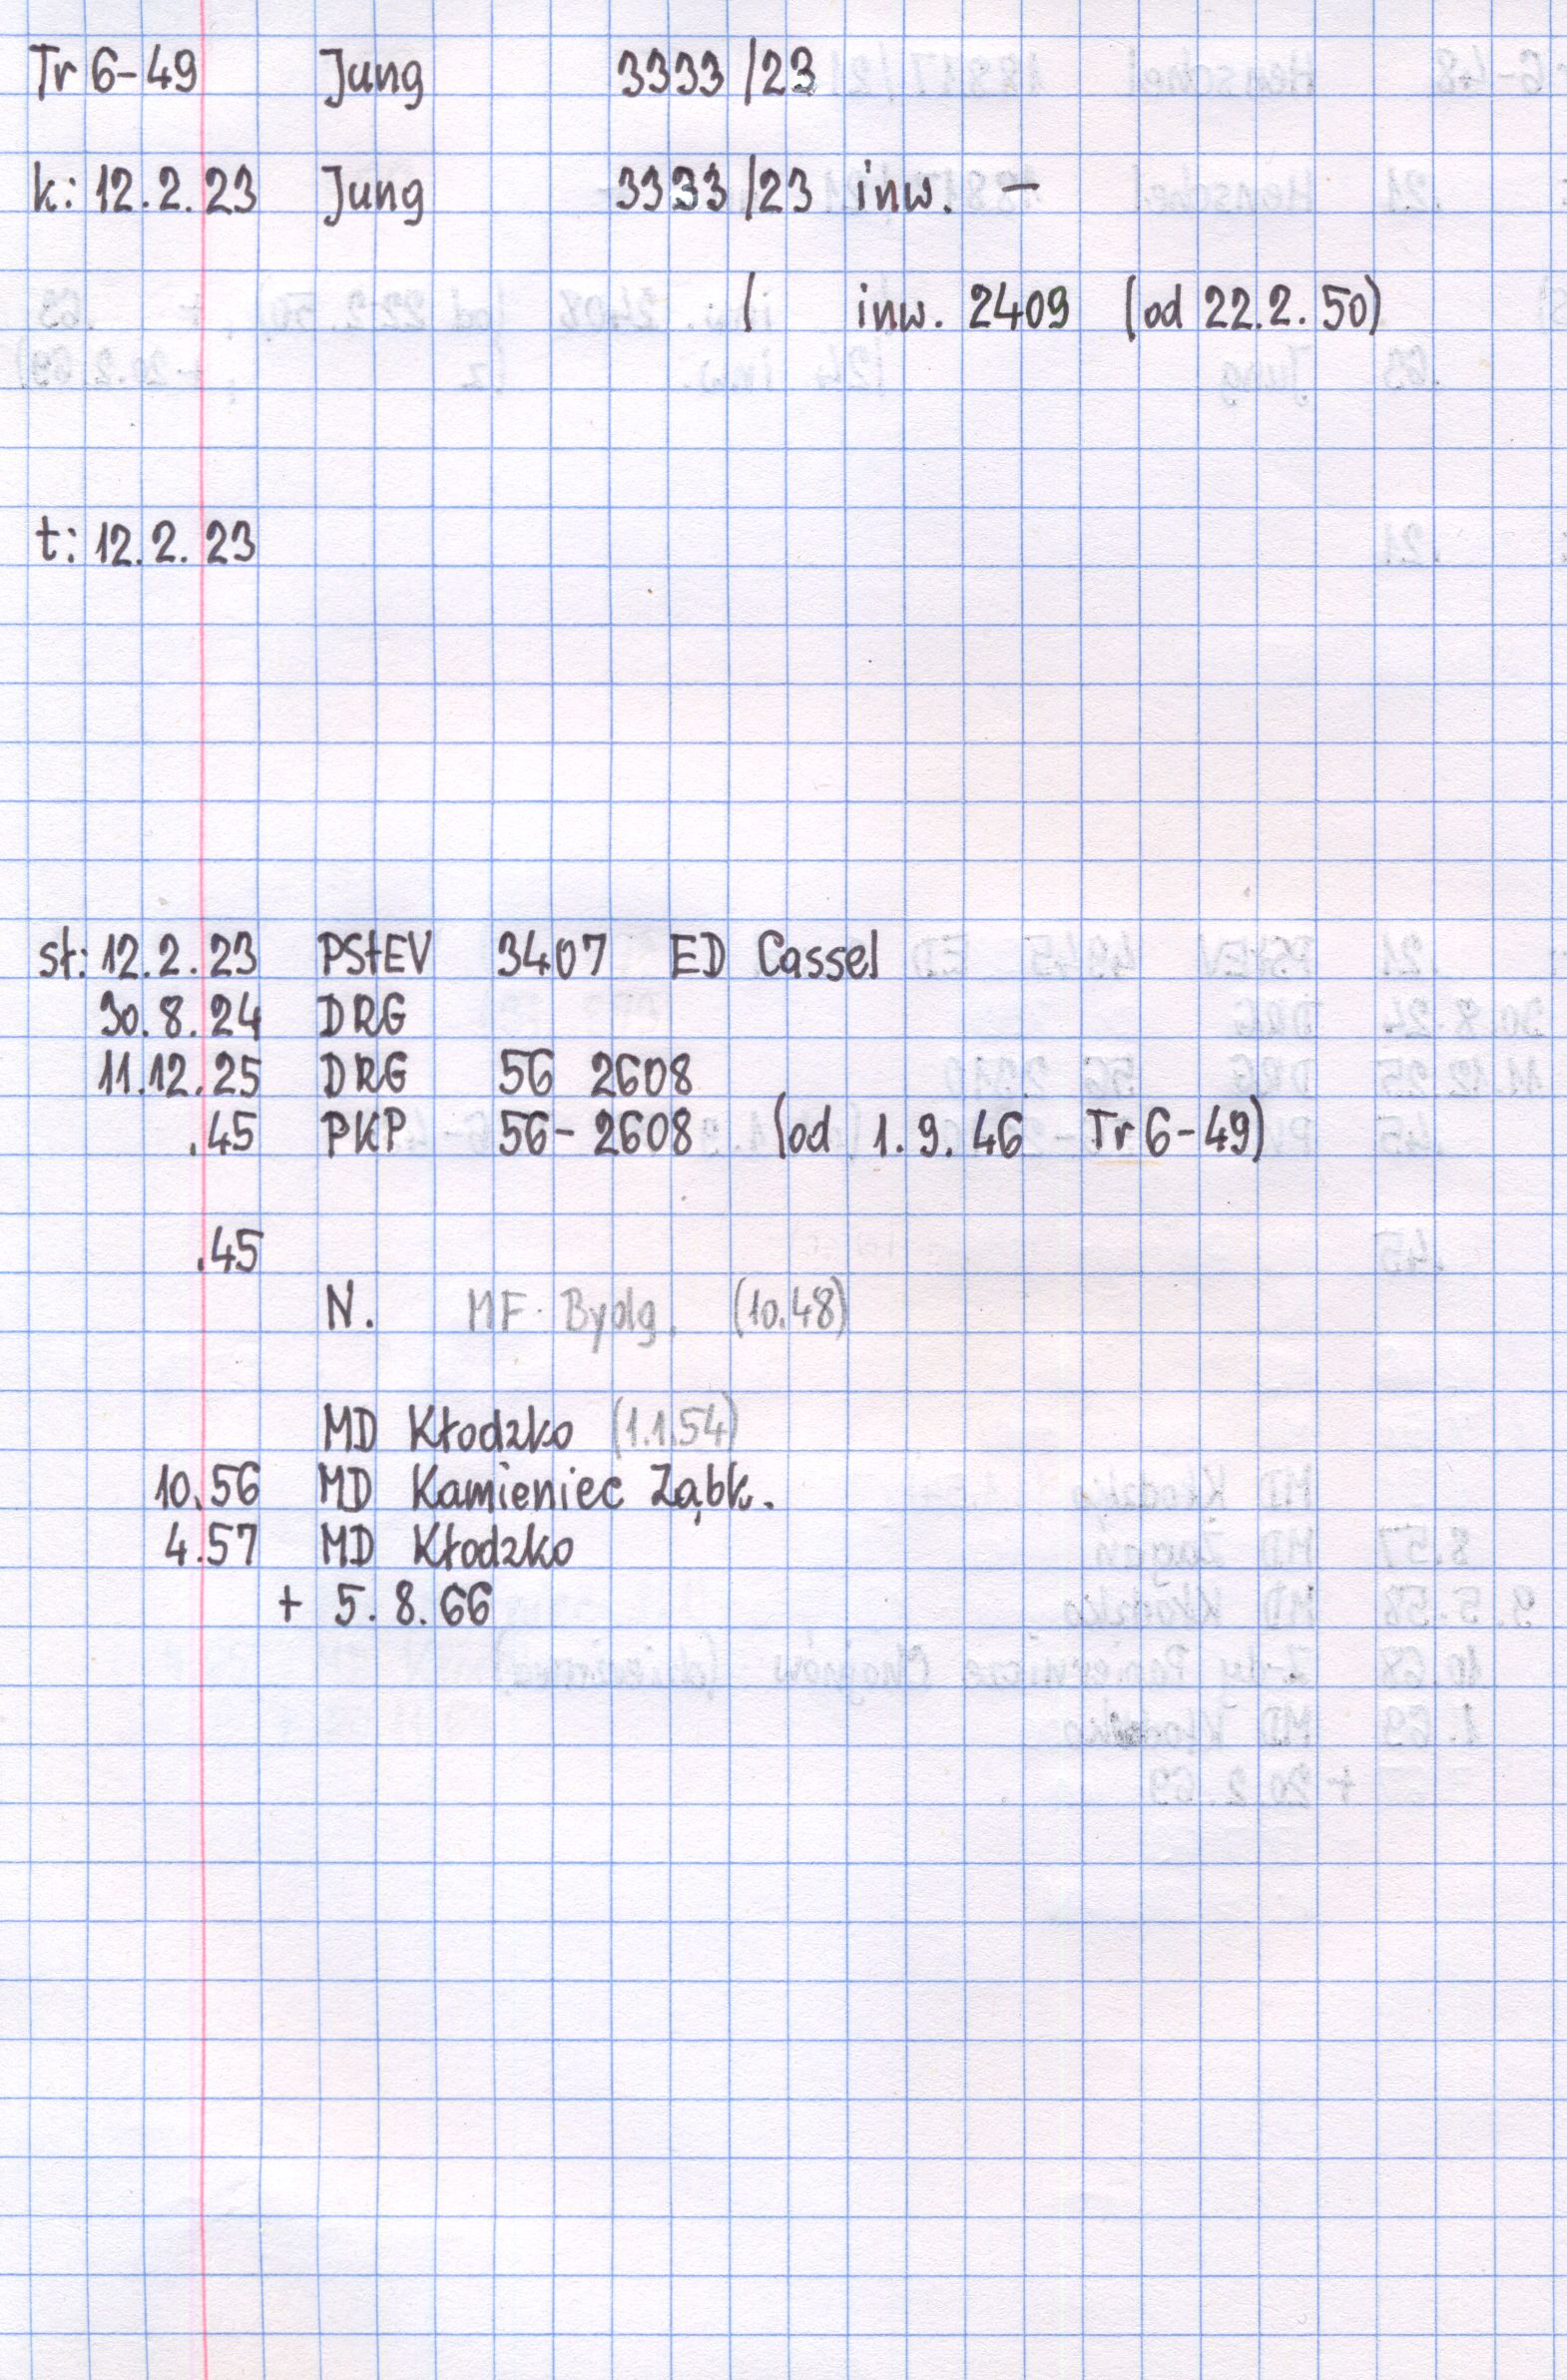 Tr 6-49 Jung 3333 /23
k: 12.2.23 Jung 3333 /23 inw. -
/ inw. 2409 (od 22.2.50)
t: 12.2.23
st: 12.2.23 PStEV 3407 ED Cassel
30.8.24 DRG
11.12.25 DRG 56 2608
.45 PKP 56-2608 (od 1.9.46 Tr 6-49)
.45
N. MF Bydg. (10.48)
MD Kłodzko (1.1.54)
10.56 MD Kamieniec Ząbk.
4.57 MD Kłodzko
+ 5.8.66